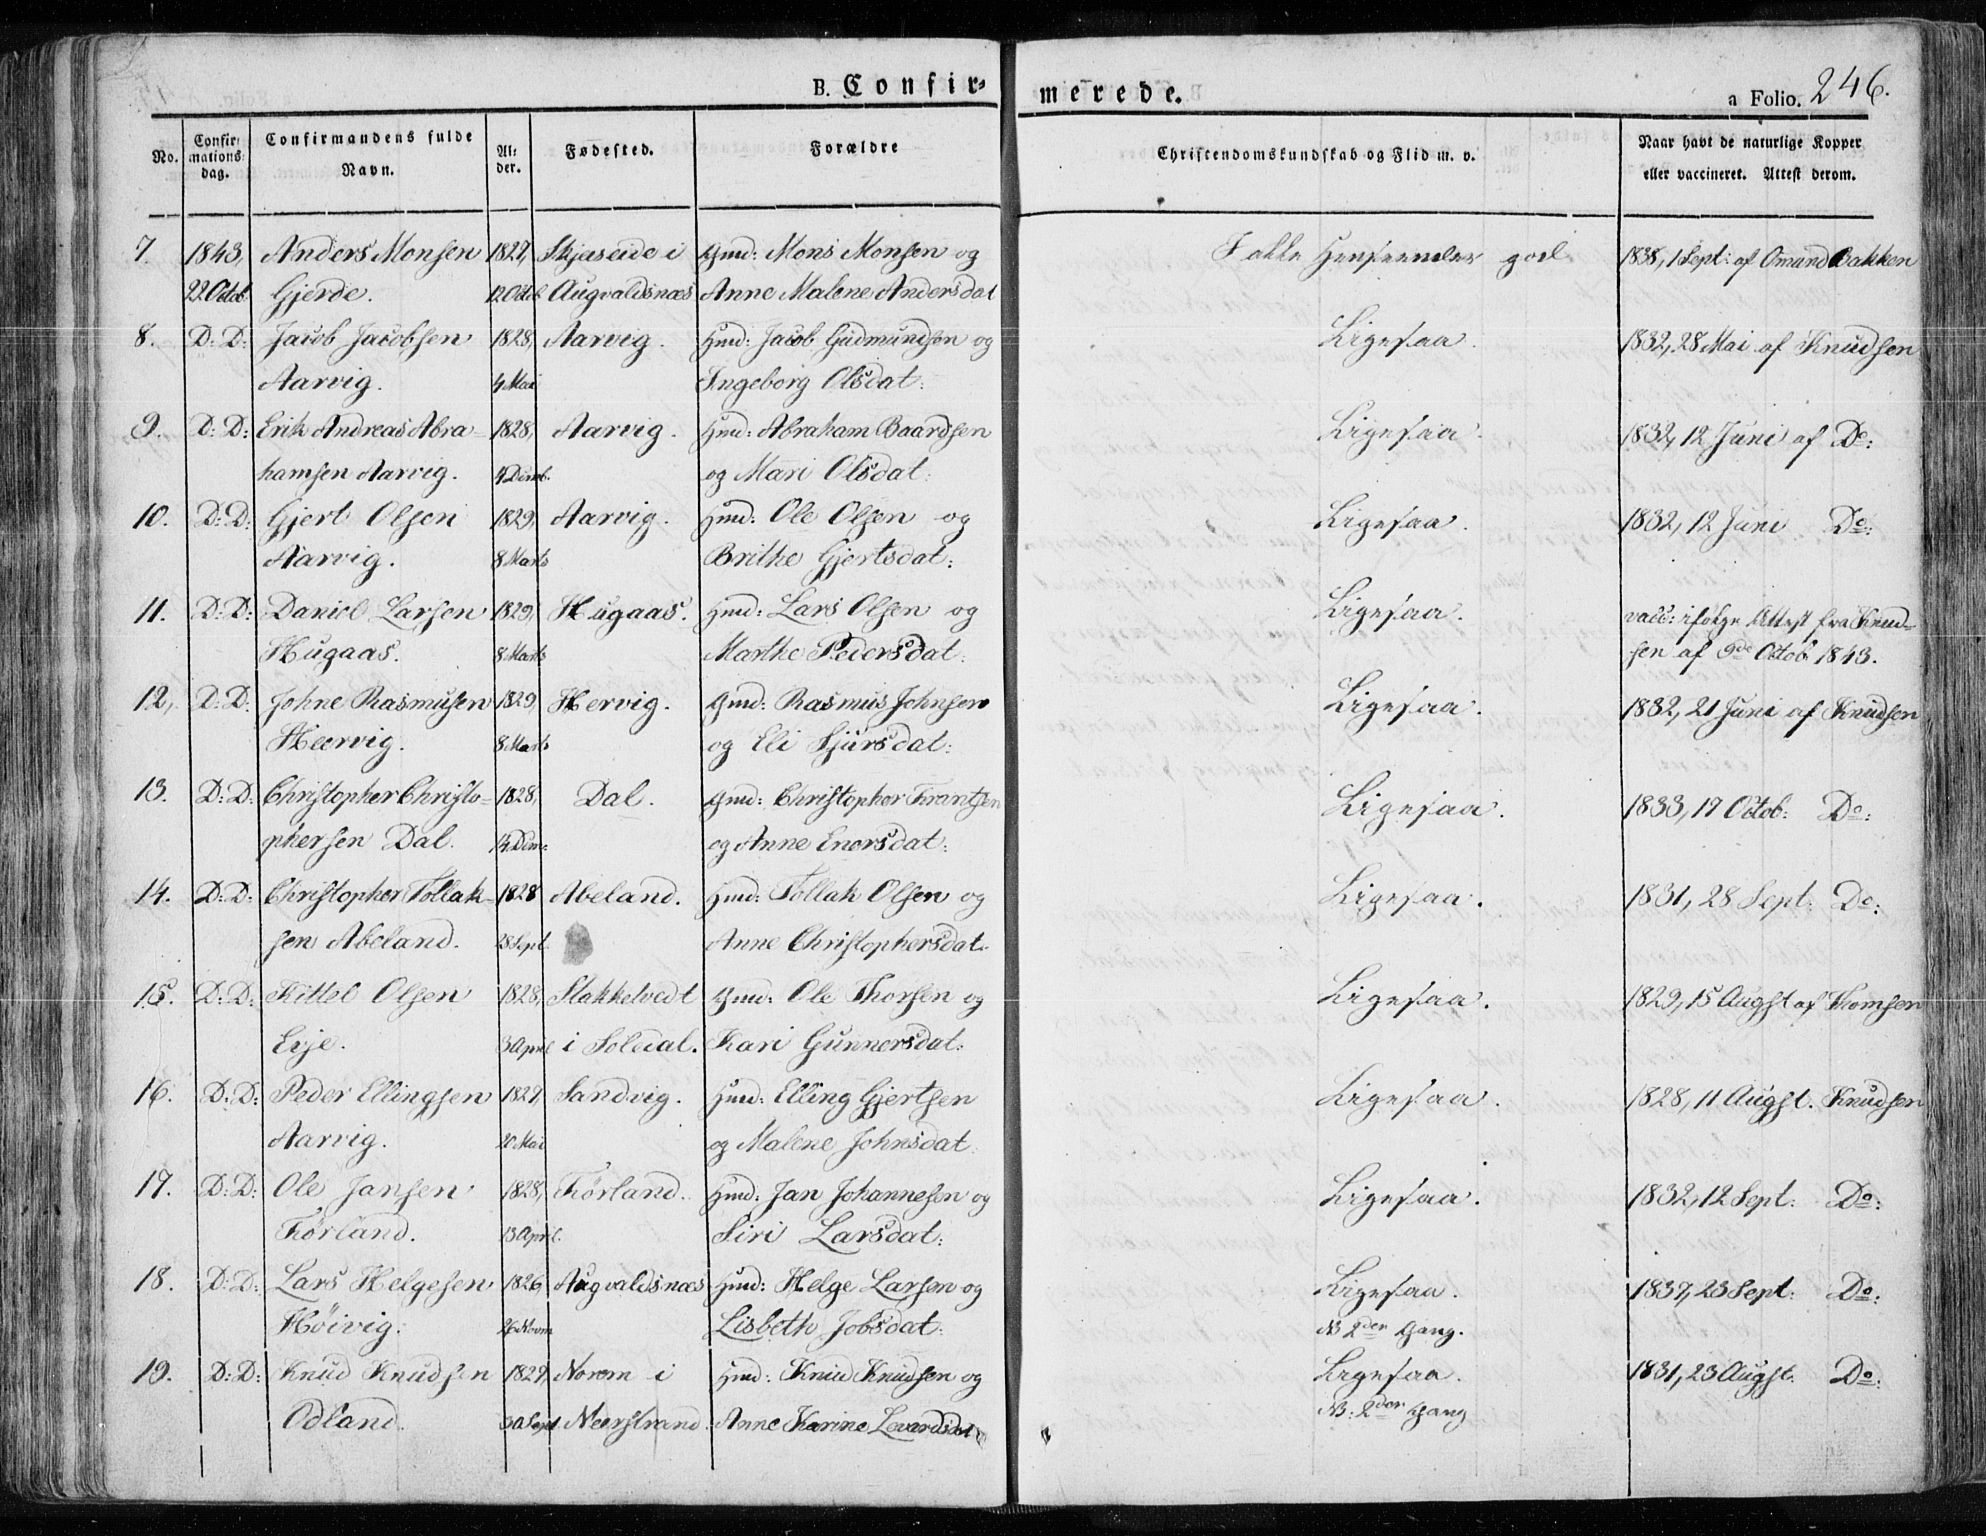 B. Confir-
merede.
a Folio. 246.
No.
Confir-
mations-
dag.
Confirmandens fulde
Navn.
Al-
der.
Fødested.
Forældre
Christendomskundskab og Flid m. v.
Naar havt de naturlige Kopper
eller vaccineret. Attest derom.
7. 1843, Anders Monsen 1827, Skjæseide i Gmd: Mons Monsen og I Henseender god 1838, 1 Sept: af Omund Bakken
22 Octob Gjerde. 12 Octob Augvaldsnæs Anne Malene Andersdat
8. D: D: Jacob Jacobsen 1828, Aarvig. Hmd: Jacob Gudmundsen og Ligesaa. 1832, 28 Mai af Knudsen
Aarvig. 4 Mai Ingeborg Olsdat:
9. D: D: Erik Andreas Abra- 1828, Aarvig. Hmd: Abraham Baardsen Ligesaa. 1832, 12 Juni af Do:
hamsen Aarvig. og Mari Olsdat:
10. D: D: Gjert Olsen 1829, Aarvig. Hmd: Ole Olsen og Ligesaa. 1832, 12 Juni Do:
Aarvig. 8 Marts Brithe Gjertsdat:
11. D: D: Daniel Larsen 1829, Hugaas. Hmd: Lars Olsen og Ligesaa. vacc: ifølge Attest fra Knud-
Hugaas. 8 Marts Marthe Pedersdat: sen af 9de Octob 1843.
12, D: D: Johne Rasmusen 1829, Hervig. Gmd: Rasmus Johnsen Ligesaa. 1832, 21 Juni af Knudsen
Heervig. 8 Marts og Eli Sjursdat:
13. D: D: Christopher Christo- 1828, Dal. Gmd: Christopher Frantsen Ligesaa. 1833, 17 Octob: Do:
phersen Dal. og Anne Enersdat:
14. D: D: Christopher Tollak- 1828 Abeland. Hmd: Tollak Olsen og Ligesaa. 1831, 28 Sept: Do:
sen Abeland. 28 Sept. Anne Christophersdat:
15. D: D: Kittel Olsen 1828, Slakketvedt Gmd: Ole Thorsen og Ligesaa. 1829, 15 Augst af Thomsen
Eije. 3 April i Soledal. Kari Gunnersdat:
16. D: D: Peder Ellingsen 1827, Sandvig. Hmd: Elling Gjertsen Ligesaa. 1828, 11 Augst. Knudsen
Aarvig. 20 Mai og Malene Johnsdat:
17. D: D: Ole Jansen 1828, Førland. Hmd: Jan Johannesen og Ligesaa. 1832, 12 Sept: Do:
Førland. 13 April. Siri Larsdat:
18. D: D: Lars Helgesen 1826, Augvaldsnæs Hmd: Helge Larsen og Ligesaa. 1837, 23 Sept: Do:
Høivig. 26 Novm Lisbeth Jobsdat: N 2den Gang.
19. D: D: Knud Knudsen 1827, i Hmd: Knud Knudsen og Ligesaa. 1831, 23 Augst. Do:
Odland. 30 Sept Neerstrand. Anne Karine N: 2den Gang